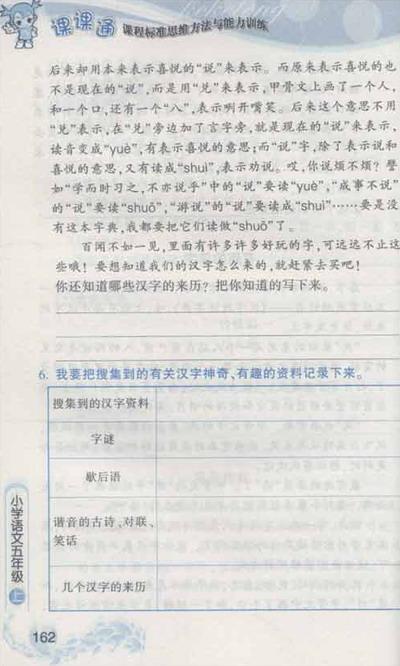 课课通 课程标准思维方法与能力训练
后来却用本来表示喜悦的“说”来表示。而原来表示喜悦的也
不是现在的“说”,而是用“兑”来表示,甲骨文上画了一个人,
和一个口,还有一个“八”,表示咧开嘴笑。后来这个意思不用
“兑”表示,在“兑”旁边加了言字旁,就是现在的“说”来表示,
读音变成“yuè”,有表示喜悦的意思;而“说”字,除了表示说和
喜悦的意思,又有读成“shuì”,表示劝说。哎,你说烦不烦?譬
如“学而时习之,不亦说乎”中的“说”要读“yuè”,“成事不说”
的“说”要读“shuō”,“游说”的“说”要读成“shuì”……要是没
有这本字典,我都要把它们读做“shuō”了。
百闻不如一见,里面有许多许多好玩的字,可远远不止这
些哦!要想知道我们的汉字怎么来的,就赶紧去买吧!
你还知道哪些汉字的来历?把你知道的写下来。
6. 我要把搜集到的有关汉字神奇、有趣的资料记录下来。
搜集到的汉字资料
字谜
歇后语
谐音的古诗、对联、
笑话
几个汉字的来历
小学语文五年级 上
162